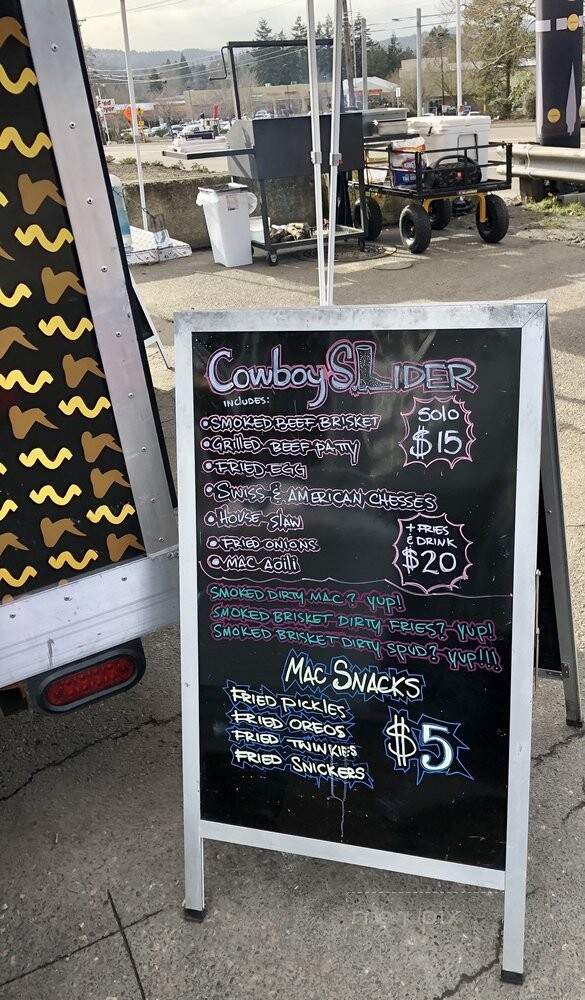 Cowboy SLIDER
INCLUDES:
• SMOKED BEEF BRISKET
• GRILLED BEEF PATTY
• FRIED EGG
• SWISS & AMERICAN CHESSES
• HOUSE SLAW
• FRIED ONIONS
• MAC AOILI
SOLO
$15
+ FRIES
& DRINK
$20
SMOKED DIRTY MAC? YUP!
SMOKED BRISKET DIRTY FRIES? YUP!
SMOKED BRISKET DIRTY SPUD? YUP!!!
MAC SNACKS
FRIED PICKLES
FRIED OREOS
FRIED TWINKIES
FRIED SNICKERS
$5